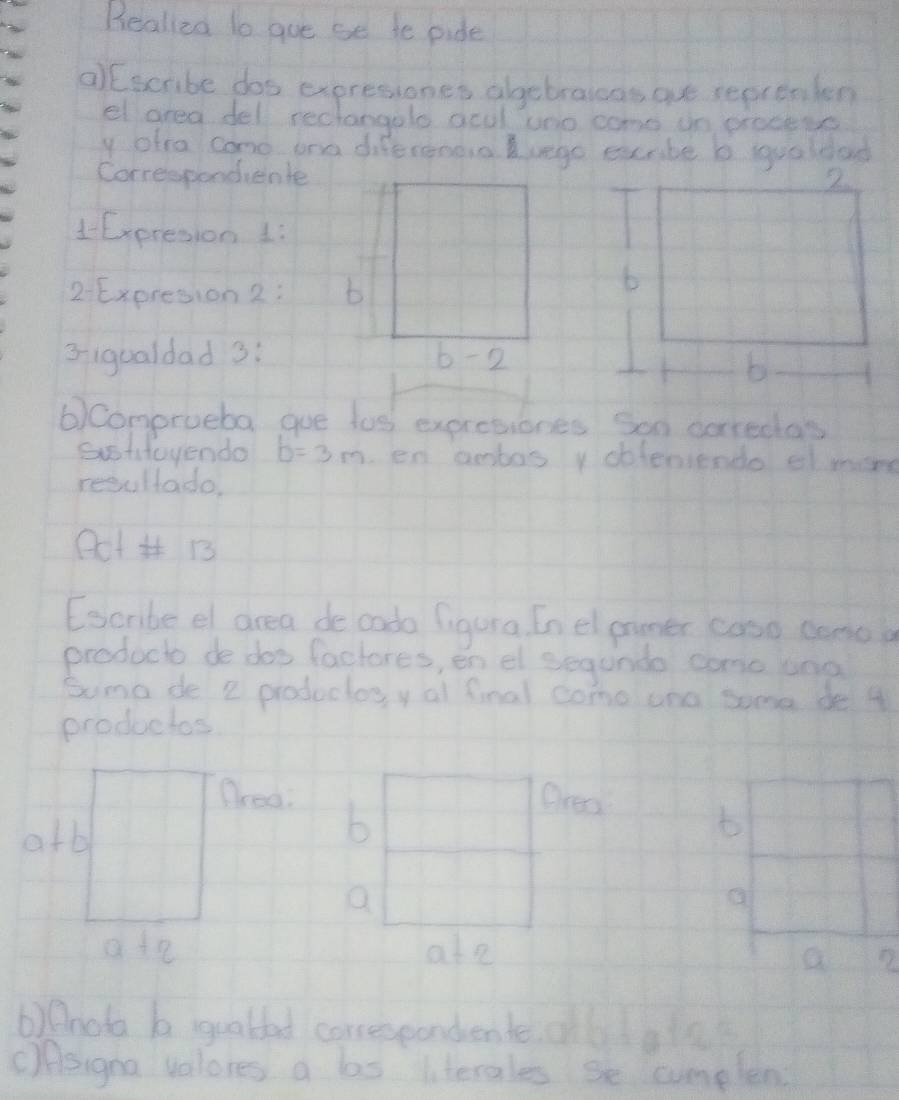 Realiza lo que se te pide
a) Escribe dos expresiones algebraicas que reprenten
el area del rectangolo acul uno como un proceso
y otra como una diferencia Luego escribe la igualdad
Correspondiente
2
1-Expresion 1:
2-Expresion 2:
b
b
3-igualdad 3:
b-2
b
b) Comprueba que las expresiones son correctas
sustituyendo b=3m. en ambas y obteniendo el
resultado.
Act # 13
Escribe el area de cada figura. En el primer caso como
producto de dos factores, en el segundo como una
Suma de 2 productos, y al final como una suma de 4
productos.
Area:
Area
b
b
a+b
a
a
a+2
a+2
a 2
b) Anota la igualdad correspondiente.
c) Asigna valores a las literales se cumplen.